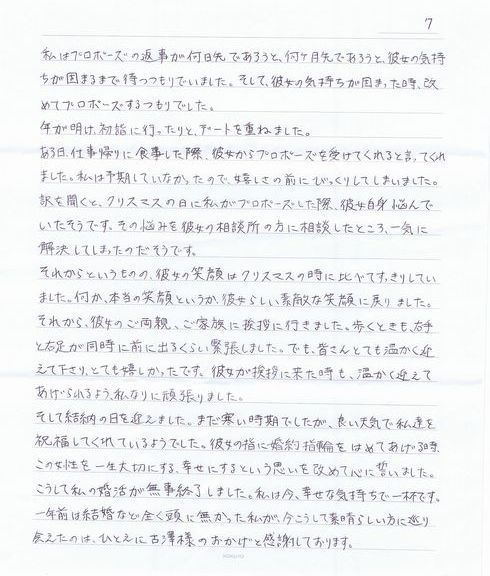 7
私はプロポーズの返事が何日先であろうと、何ヶ月先であろうと、彼女の気持
ちが固まるまで待つつもりでいました。そして、彼女の気持ちが固まった時、改
めてプロポーズするつもりでした。
年が明け、初詣に行ったりと、デートを重ねました。
ある日、仕事帰りに食事した際、彼女からプロポーズを受けてくれると言ってくれ
ました。私は予期していなかったので、嬉しさの前にびっくりしてしまいました。
訳を聞くと、クリスマスの日に私がプロポーズした際、彼女自身悩んで
いたそうです。その悩みを彼女の相談所の方に相談したところ、一気に
解決してしまったのだそうです。
それからというものの、彼女の笑顔はクリスマスの時に比べてすっきりしてい
ました。何か、本当の笑顔というか、彼女らしい素敵な笑顔に戻りました。
それから、彼女のご両親、ご家族に挨拶に行きました。歩くときも、右手
と右足が同時に前に出るくらい緊張しました。でも、皆さんとても温かく迎
えて下さり、とても嬉しかったです。彼女が挨拶に来た時も、温かく迎えて
あげられるよう、私なりに頑張りました。
そして結納の日を迎えました。まだ寒い時期でしたが、良い天気で私達を
祝福してくれているようでした。彼女の指に婚約指輪をはめてあげる時、
この女性を一生大切にする、幸せにするという思いを改めて心に誓いました。
こうして私の婚活が無事終了しました。私は今、幸せな気持ちで一杯です。
一年前は結婚など全く頭に無かった私が、今こうして素晴らしい方に巡り
会えたのは、ひとえに古澤様のおかげと感謝しております。
KOKUYO